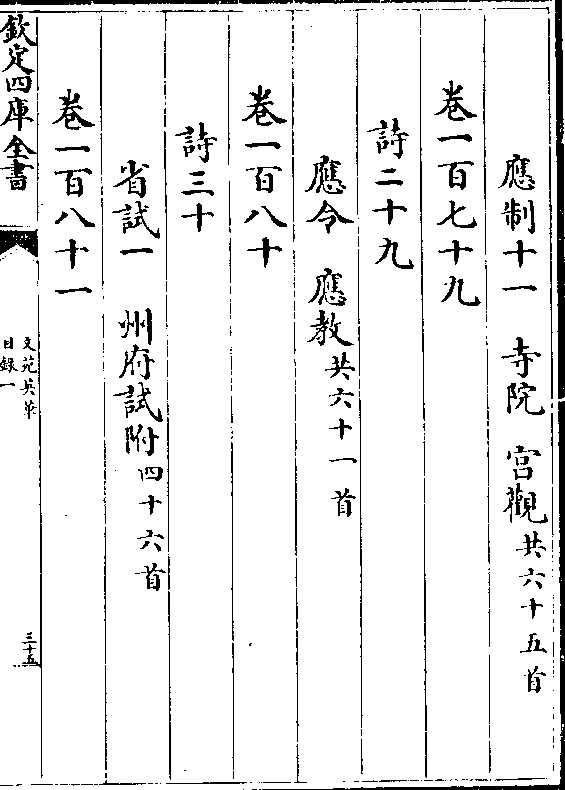 應制十一　寺院　宫觀共六十五首
卷一百七十九
詩二十九
應令　應教共六十一首
卷一百八十
詩三十
省試一　州府試附四十六首
卷一百八十一
欽定四庫全書
文苑英華
目録一
三十五